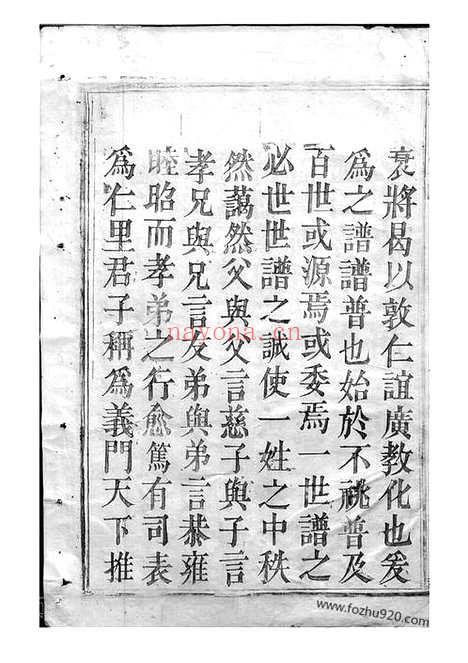 衰將曷以敦仁誼廣教化也爰
為之譜譜普也始於不祧普及
百世或源焉或委焉一世譜之
必世世譜之誠使一姓之中秩
然藹然父與父言慈子與子言
孝兄與兄言友弟與弟言恭雍
睦昭而孝弟之行愈篤有司表
為仁里君子稱為義門天下推
nayona.cn
www.fozhu920.com